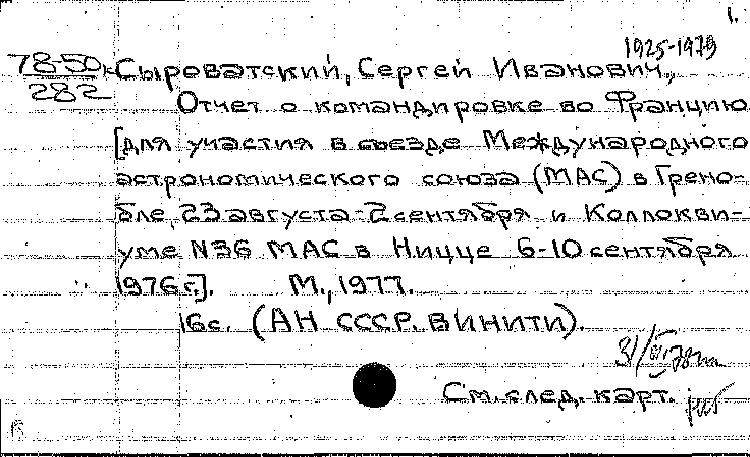 1.
1925-1979
78-50к Сыроватский, Сергей Иванович,
282
Отчет о командировке во Францию
[для участия в съезде Международного
астрономического союза (МАС) в Грено-
бле, 23 августа-2 сентября и Коллокви-
уме N36 МАС в Ницце 6-10 сентября
1976 г.]. М., 1977.
16 с. (АН СССР. ВИНИТИ).
См. след. карт.